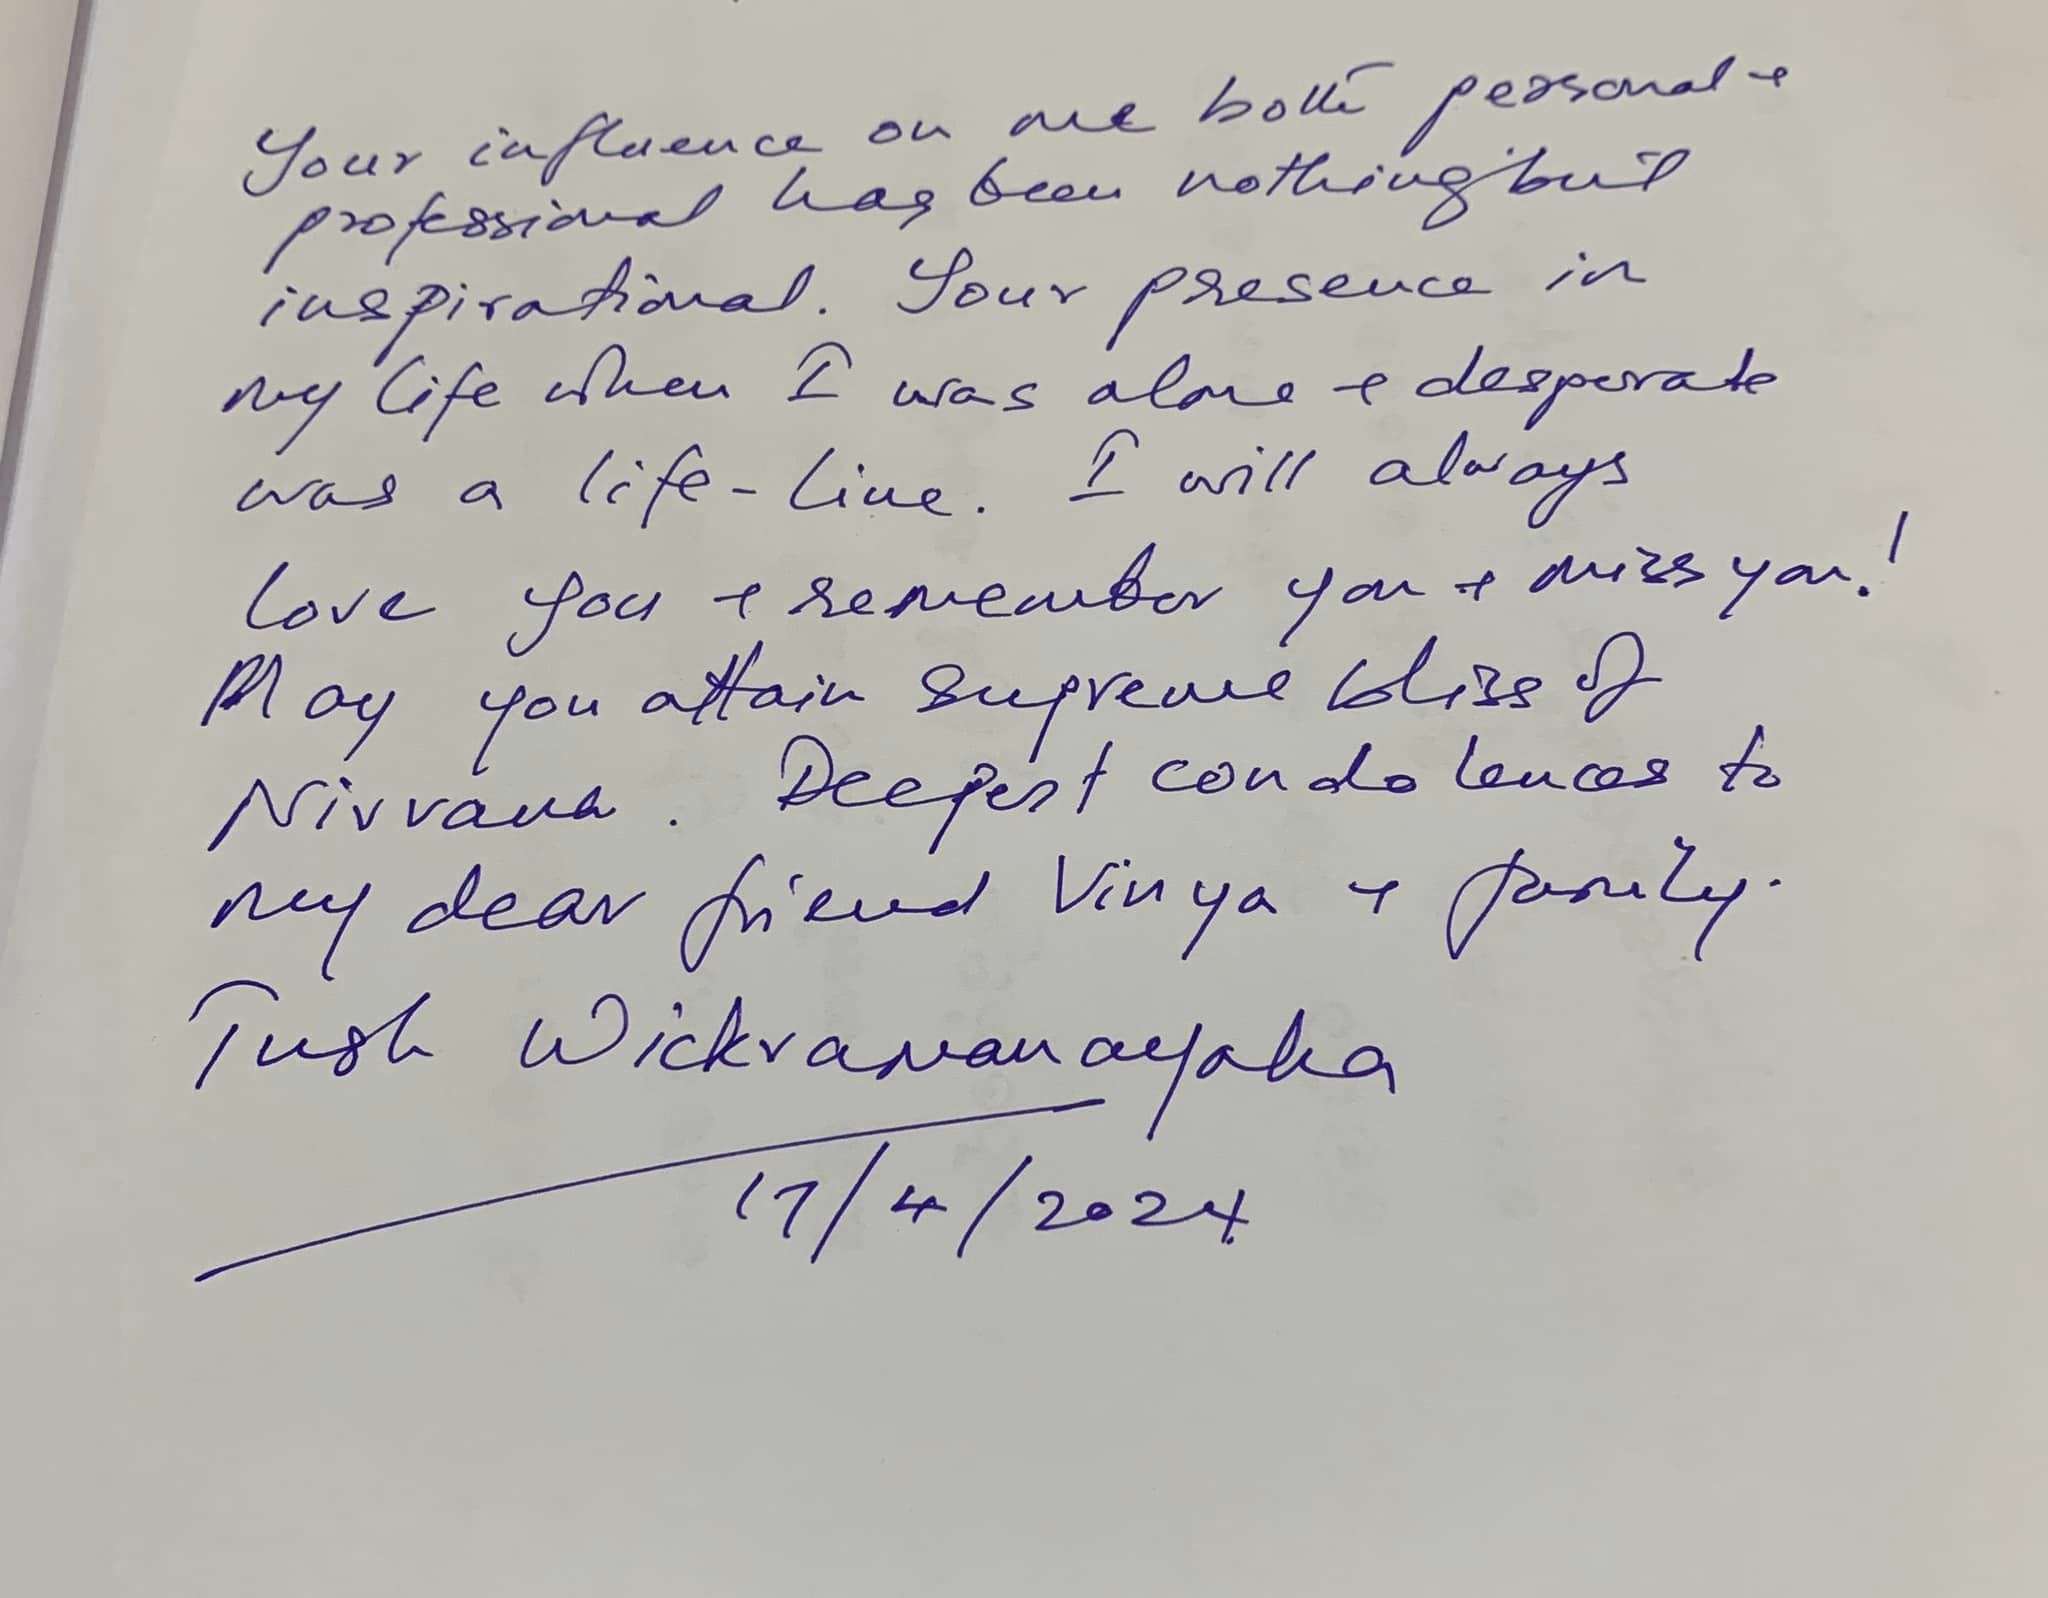 Your influence on me both personal +
professional has been nothing but
inspirational. Your presence in
my life when I was alone + desperate
was a life-line. I will always
love you + remember you + miss you!
May you attain supreme bliss of
Nirvana. Deepest condolences to
my dear friend Vinya + family.
Tush Wickramanayaka
17/4/2024